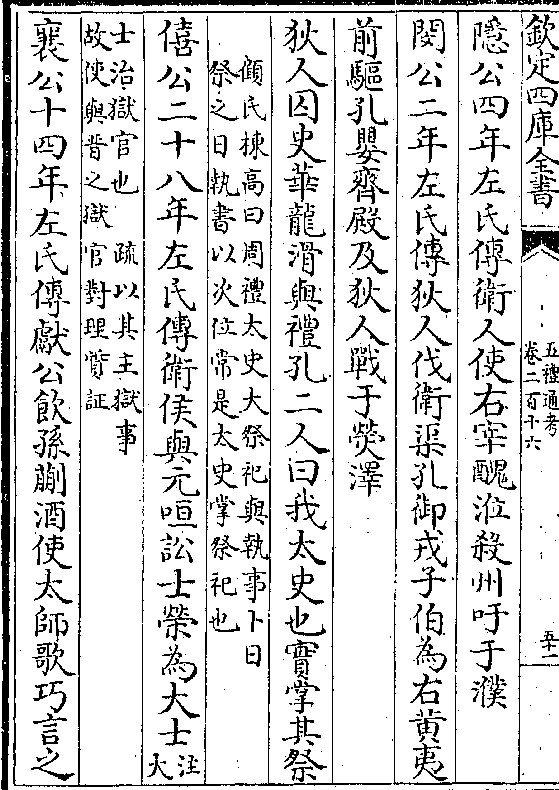 欽定四庫全書
五禮通考
卷二百十六
五十一
隱公四年左氏傳衛人使右宰醜涖殺州吁于濮
閔公二年左氏傳狄人伐衛渠孔御戎子伯為右黄夷
前驅孔嬰齊殿及狄人戰于熒澤
狄人囚史華龍滑與禮孔二人曰我太史也實掌其祭
顧氏棟高曰周禮太史大祭祀與執事卜日
祭之日執書以次位常是太史掌祭祀也
僖公二十八年左氏傳衛侯與元咺訟士榮為大士注
大
士治獄官也 疏以其主獄事
故使與晉之獄官對理質証
襄公十四年左氏傳獻公飲孫蒯酒使太師歌巧言之